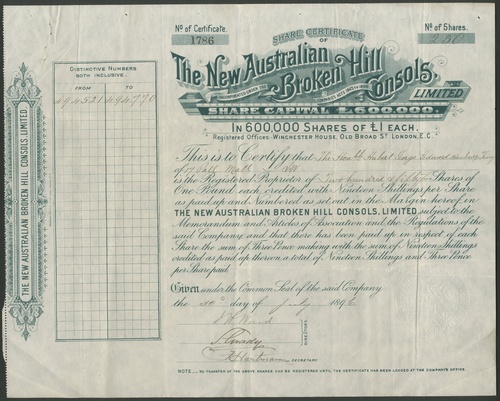 Nº of Certificate.
1786
Nº of Shares.
250
SHARE CERTIFICATE
OF
The New Australian
Broken Hill
Consols,
LIMITED
SHARE CAPITAL £600,000.
IN 600,000 SHARES OF £1 EACH.
Registered Offices: WINCHESTER HOUSE, OLD BROAD ST LONDON, E.C.
DISTINCTIVE NUMBERS
BOTH INCLUSIVE.
FROM TO
494521 494770
THE NEW AUSTRALIAN BROKEN HILL CONSOLS, LIMITED
This is to Certify that The Hon. Hubert George Edward
of Pall Mall
is the Registered Proprietor of Two hundred & fifty Shares of
One Pound each, credited with Nineteen Shillings per Share
as paid up and Numbered as set out in the Margin hereof in
THE NEW AUSTRALIAN BROKEN HILL CONSOLS, LIMITED subject to the
Memorandum and Articles of Association and the Regulations of the
said Company and that there has been paid up in respect of each
Share the sum of Three Pence making with the sum of Nineteen Shillings
credited as paid up thereon a total of Nineteen Shillings and Three Pence
per Share paid.
Given under the Common Seal of the said Company
the day of July 1896
DIRECTORS.
SECRETARY
NOTE.— NO TRANSFER OF THE ABOVE SHARES CAN BE REGISTERED UNTIL THE CERTIFICATE HAS BEEN LODGED AT THE COMPANY'S OFFICE.